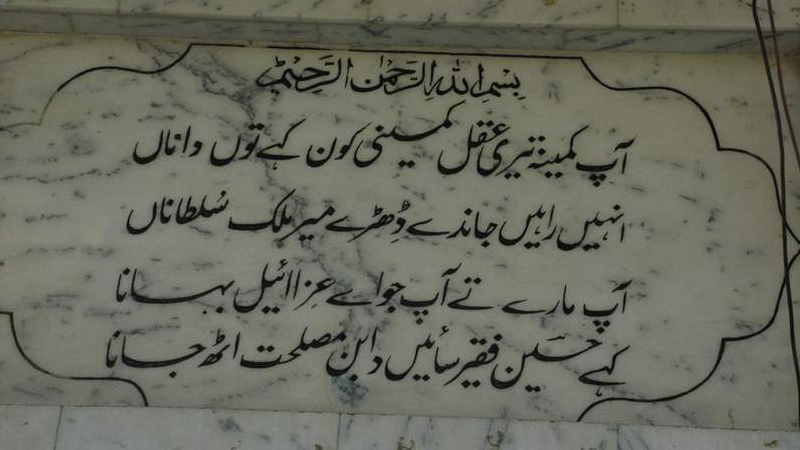 بِسْمِ اللہِ الرَّحْمٰنِ الرَّحِیْمِ
آپ کمینہ تیری عقل کمینی کون کہے توں داناں
انہیں راہیں جاندے ڈِھڑے میر ملک سُلطاناں
آپ مارے تے آپ جواے عزرائیل بہانا
کہے حسین فقیر سائیں دا بن مصلحت اٹھ جانا